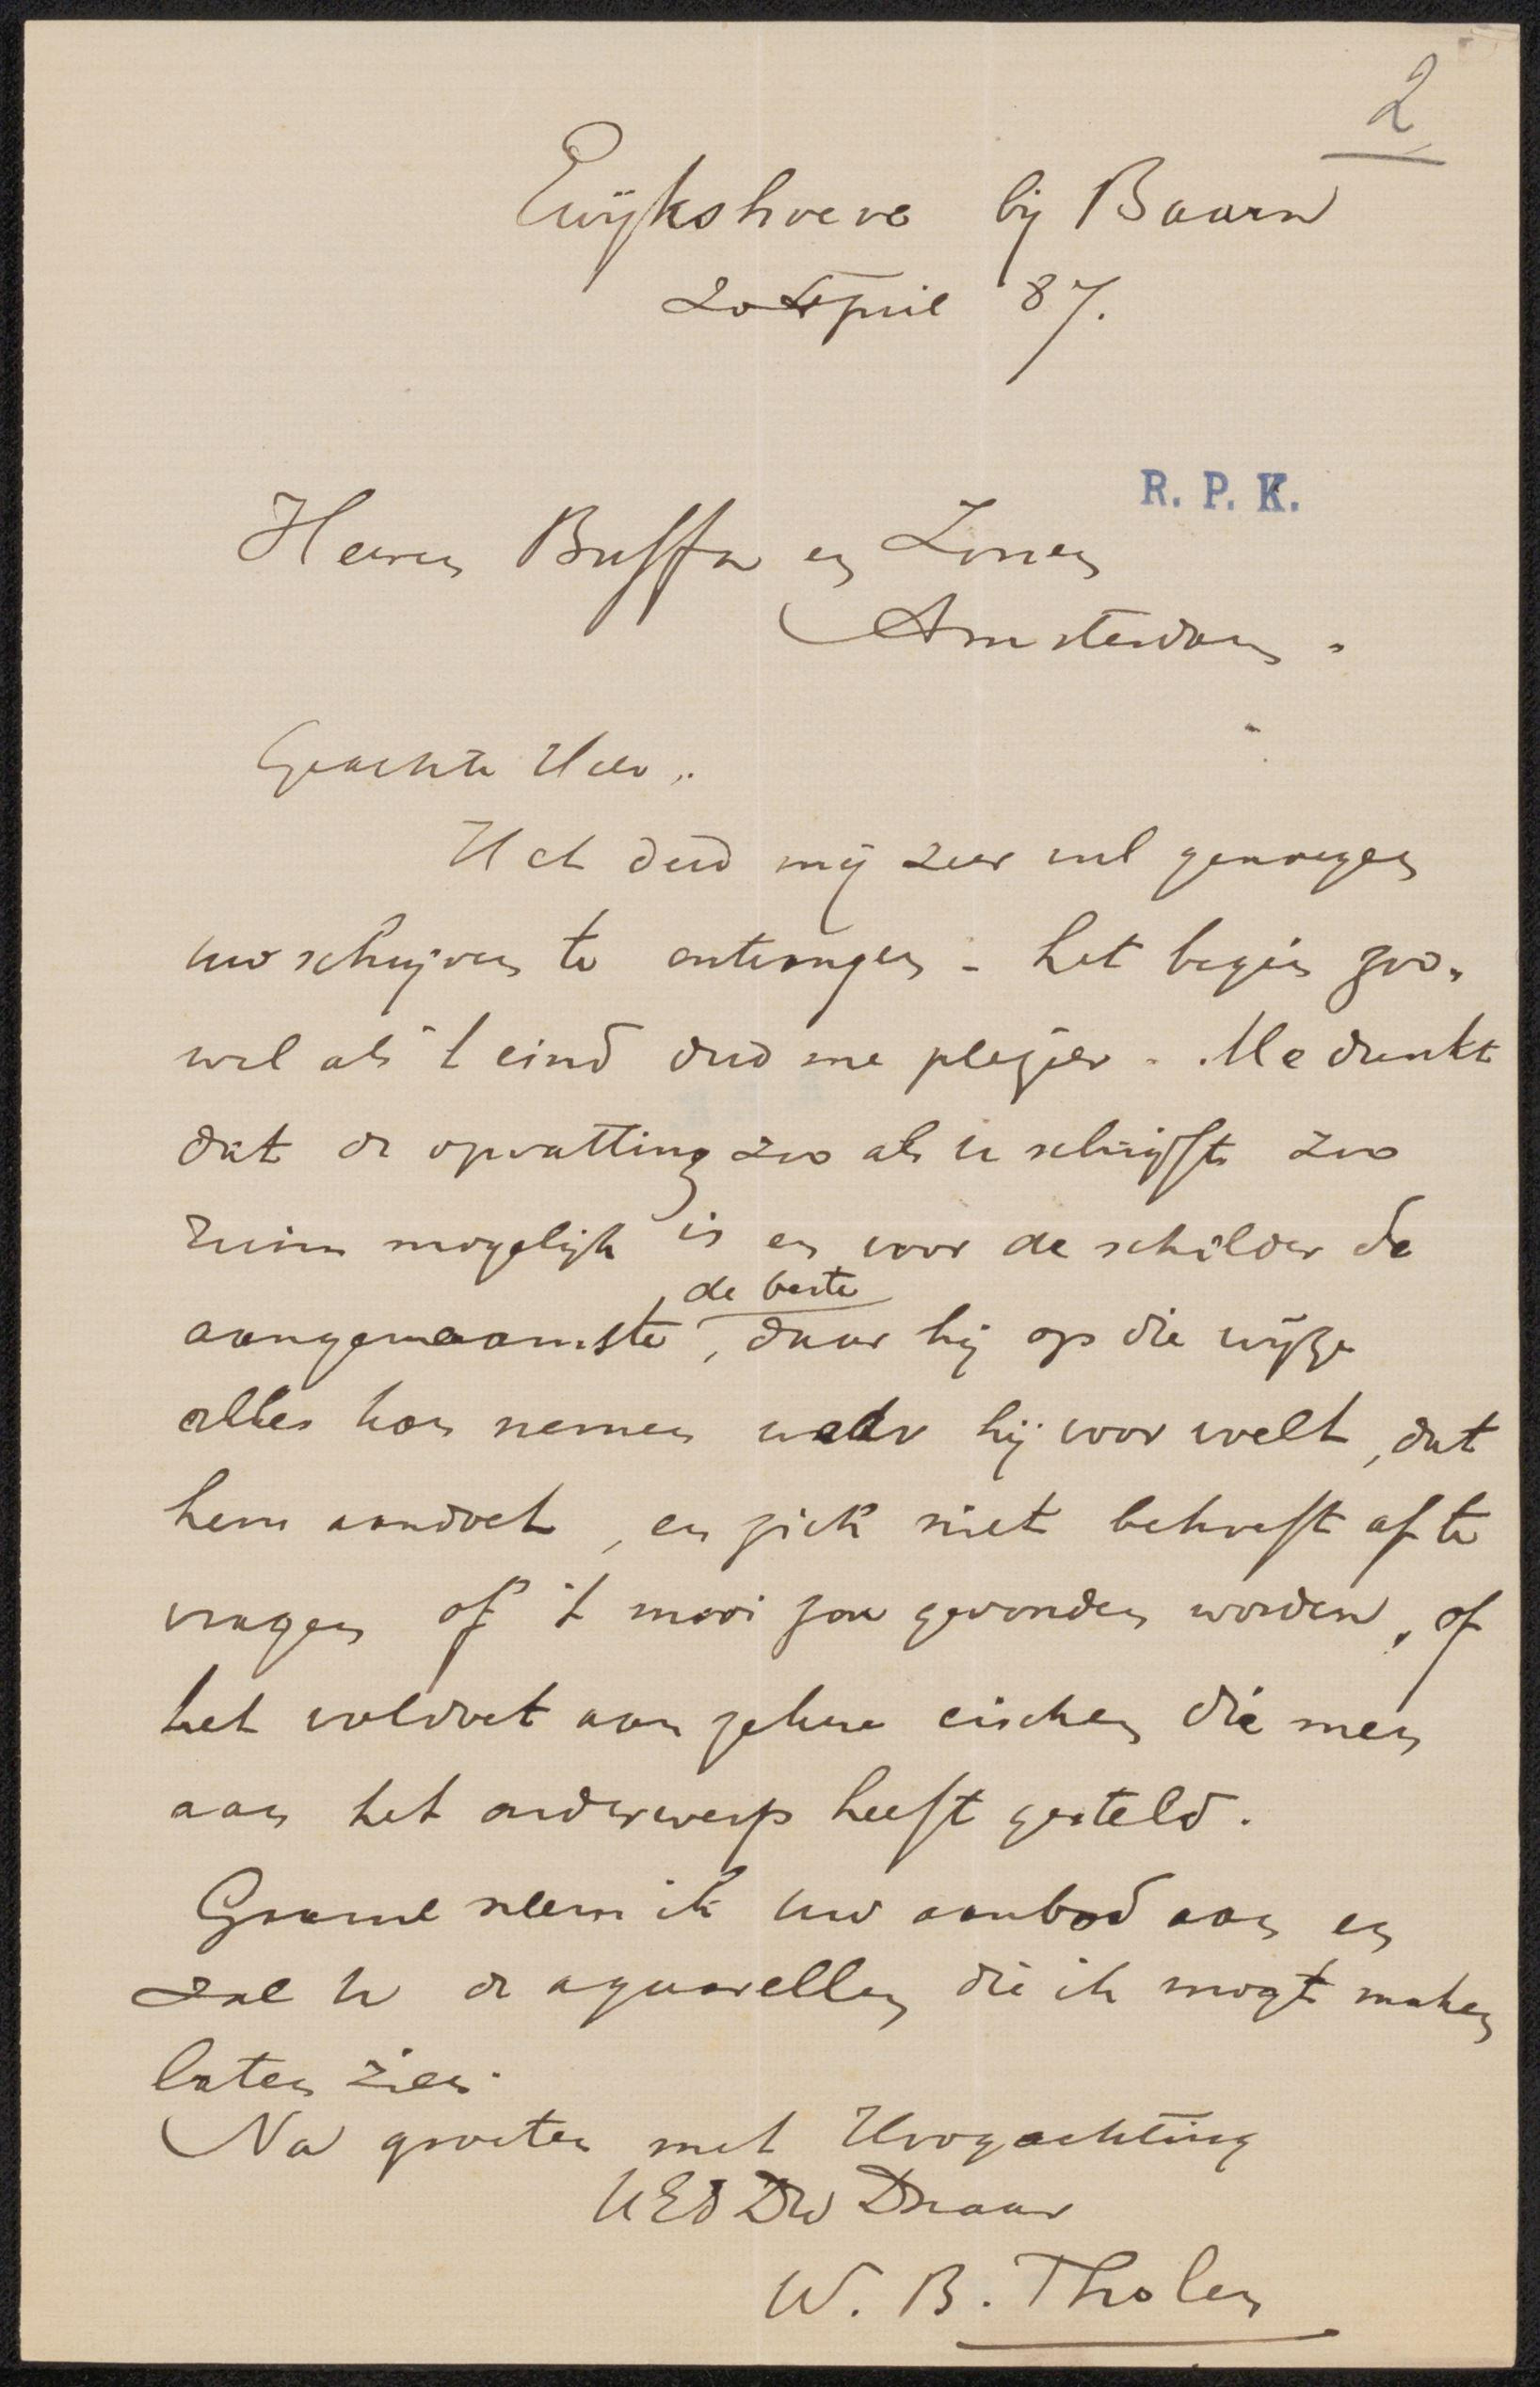 2
Ewijkshoeve bij Baarn
20 April 87.
R. P. K.
Heeren Buffa en Zonen
Amsterdam.
Geachte Heer,.
Het deed mij zeer veel genoegen
uw schrijven te ontvangen - het begin zoo-
wel als 't eind deed me plezier. Me dunkt
dat de opvatting zoo als u schrijft zoo
ruim mogelijk is en voor de schilder de
de beste
aangenaamste, daar hij op die wijze
alles kan nemen waar hij voor voelt, dat
hem aandoet, en zich niet behoeft af te
vragen of 't mooi zou gevonden worden, of
het voldoet aan zekere eischen die men
aan het onderwerp heeft gesteld.
Gaarne neem ik uw aanbod aan en
zal u de aquarellen die ik mogt maken
laten zien.
Na groeten met Hoogachting
UEd Dw Dnaar
W. B. Tholen